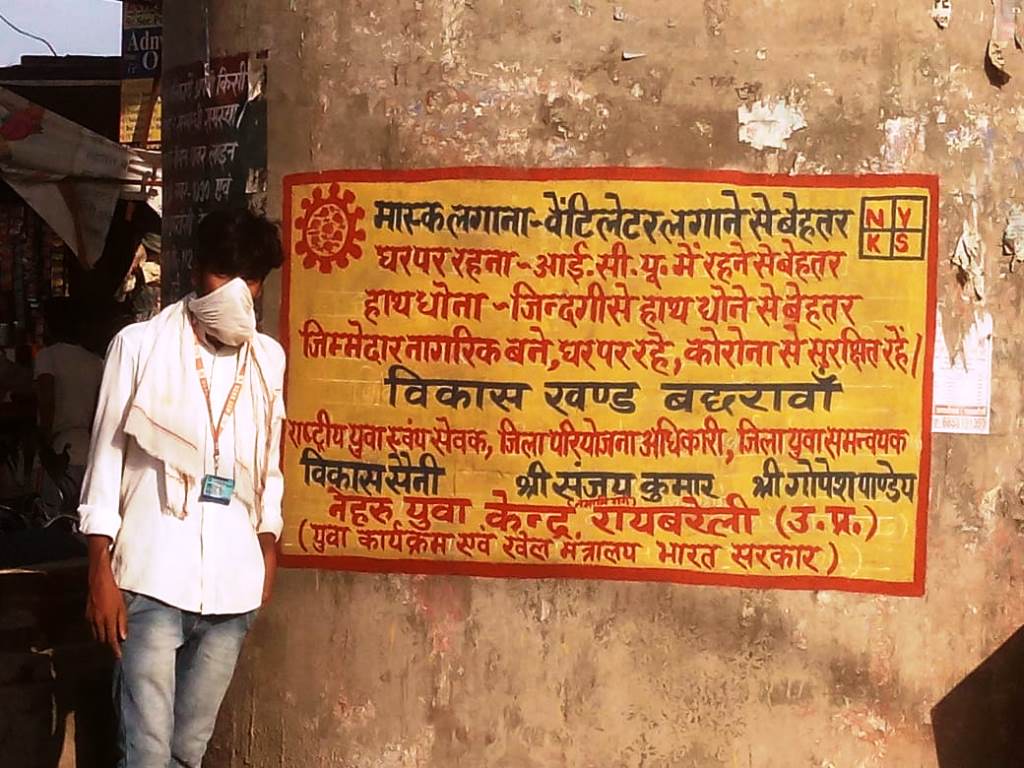 मास्क लगाना - वेंटिलेटर लगाने से बेहतर
NY
KS
घर पर रहना - आई.सी.यू. में रहने से बेहतर
हाथ धोना - जिन्दगी से हाथ धोने से बेहतर
जिम्मेदार नागरिक बने, घर पर रहे, कोरोना से सुरक्षित रहें।
विकास खण्ड बछरावाँ
राष्ट्रीय युवा स्वंय सेवक, जिला परियोजना अधिकारी, जिला युवा समन्वयक
विकास सैनी श्री संजय कुमार श्री गोपेश पाण्डेय
नेहरु युवा केन्द्र रायबरेली (उ.प्र.)
(युवा कार्यक्रम एवं खेल मंत्रालय भारत सरकार)